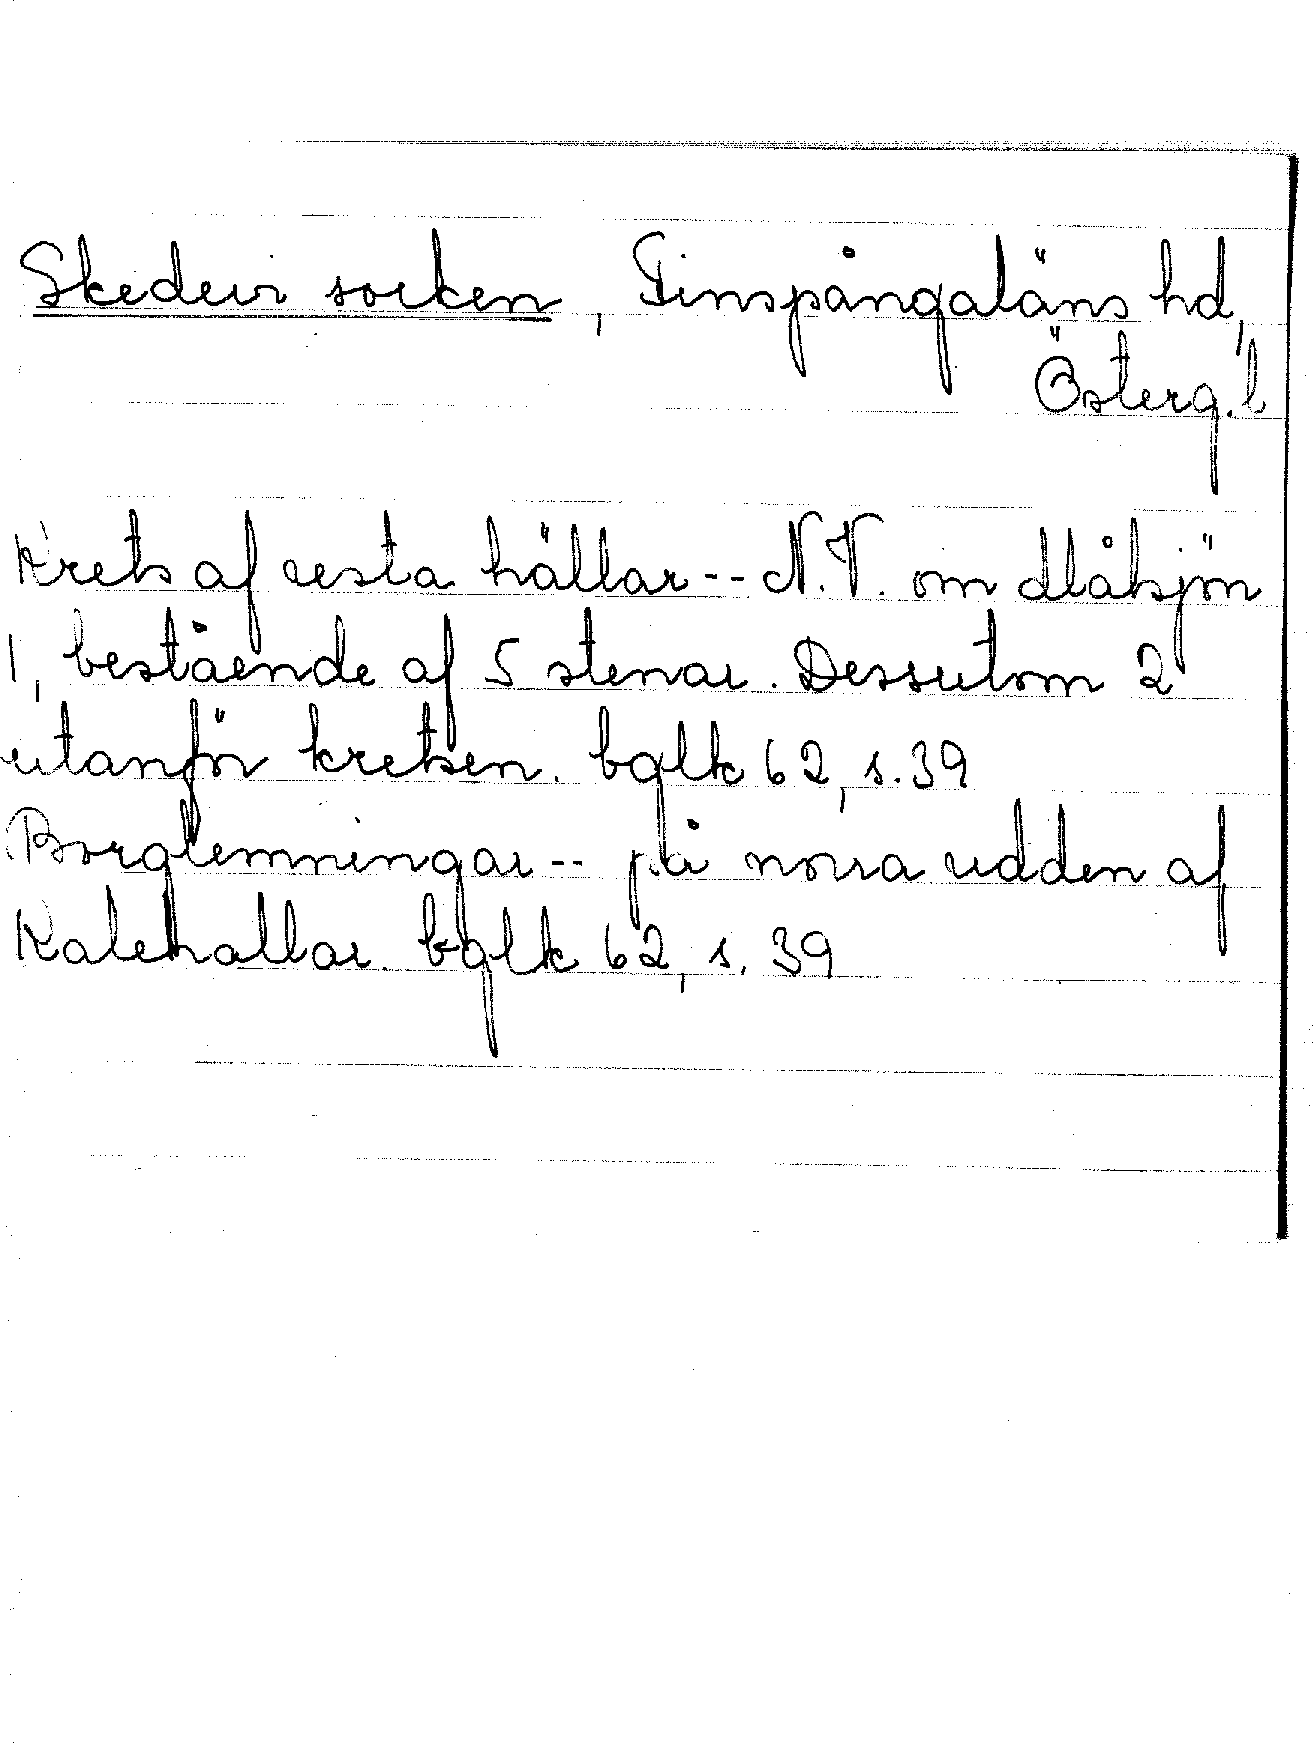 Skedevi socken, Finspångaläns hd,
Österg. l
Krets af resta hällar -- N.V. om dlåksjön
1, bestående af 5 stenar. Dessutom 2
utanför kretsen. bglk 62, s. 39
Borglemningar -- på norra udden af
Kalehallar. bglk 62, s. 39